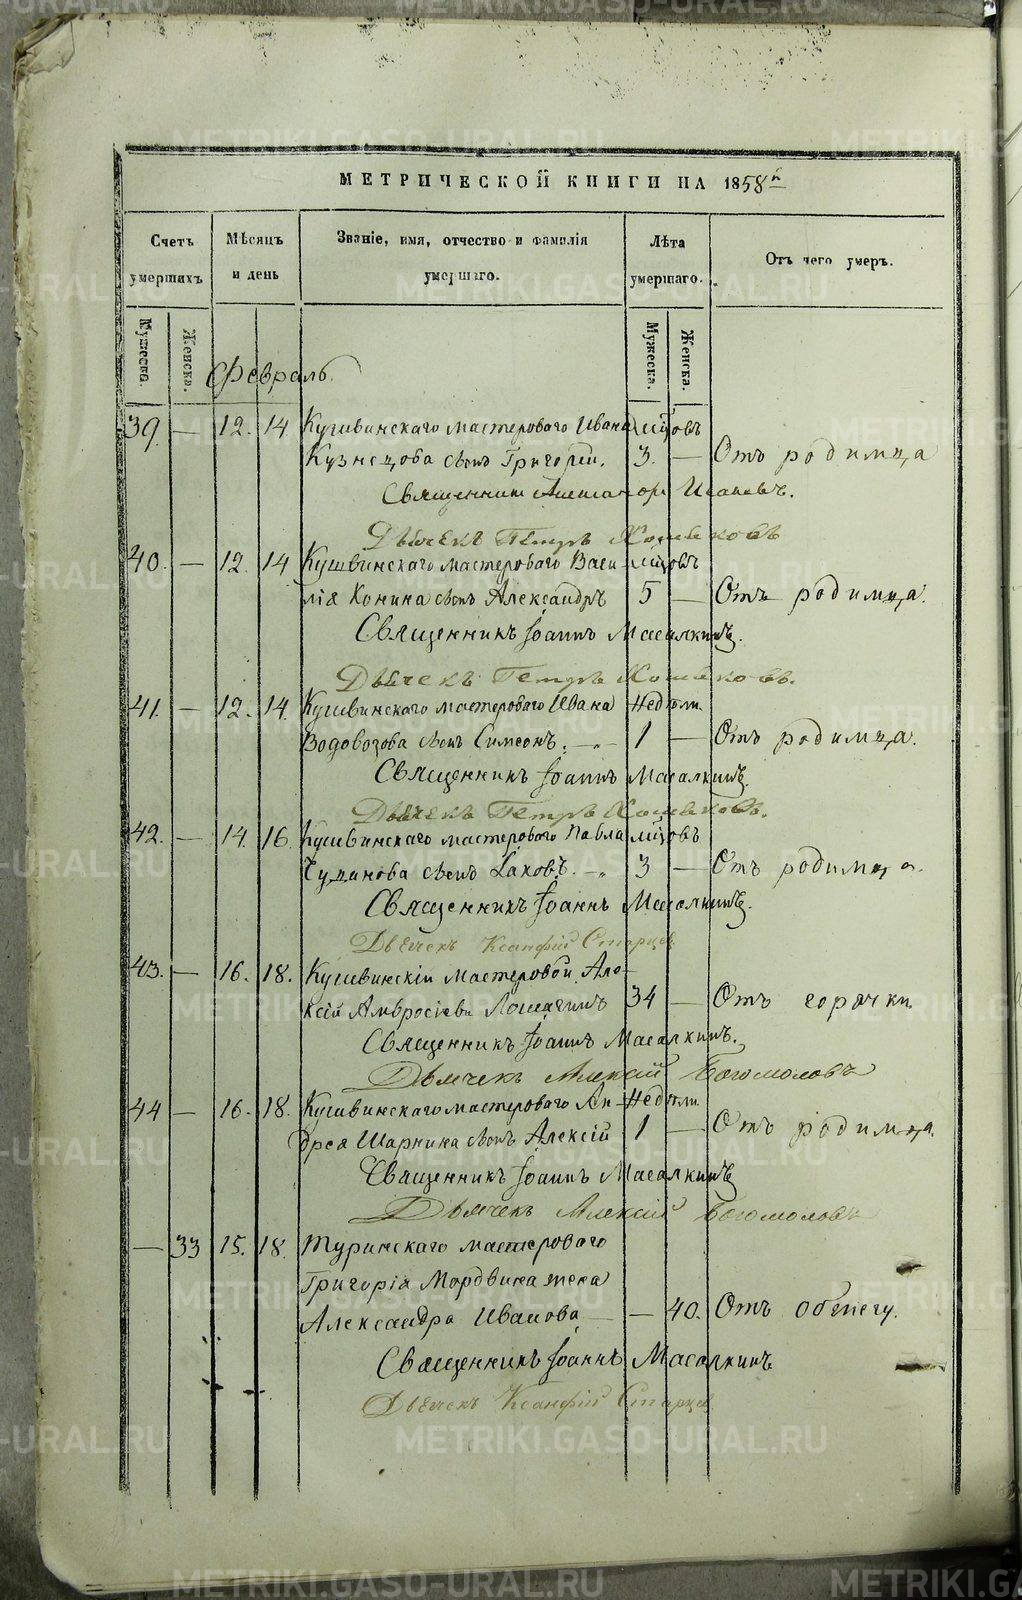 МЕТРИЧЕСКОЙ КНИГИ НА 1858й
Счетъ умершихъ
Мѣсяцъ и день
Званіе, имя, отчество и фамилія умершаго.
Лѣта умершаго.
Отъ чего умеръ.
Мужеска.
Женска.
Мужеска.
Женска.
Февраль
39. — 12. 14. Кушвинскаго мастероваго Ивана мѣсцовъ
Кузнецова сынъ Григорій. 3. — Отъ родимца
Священникъ Александръ Ивановъ.
Дьячекъ Петръ
40. — 12. 14 Кушвинскаго мастероваго Васи-
лія Конина сынъ Александръ 5 — Отъ родимца.
Священникъ Іоаннъ Масалкинъ.
Дьячекъ Петръ
41. — 12. 14. Кушвинскаго мастероваго Ивана Недѣли
Водовозова сынъ Симеонъ. — 1 — Отъ родимца.
Священникъ Іоаннъ Масалкинъ.
Дьячекъ Петръ
42. — 14. 16. Кушвинскаго мастероваго Павла
Чудинова сынъ Іаковъ. — 3 — Отъ родимца.
Священникъ Іоаннъ Масалкинъ.
Дьячекъ Ксанфій Старцев
43. — 16. 18. Кушвинскій мастеровой Але-
ксій Амвросіевъ 34 — Отъ горячки
Священникъ Іоаннъ Масалкинъ.
Дьячекъ Алексій Богомоловъ
44 — 16. 18. Кушвинскаго мастероваго Ан- Недѣли
дрея Шарнина сынъ Алексій 1 — Отъ родимца.
Священникъ Іоаннъ Масалкинъ
Дьячекъ Алексій Богомоловъ
— 33 15. 18. Туринскаго мастероваго
Григорія Мордвина жена
Александра Иванова — — 40. Отъ
Священникъ Іоаннъ Масалкинъ
Дьячекъ Ксанфій Старцев
METRIKI.GASO-URAL.RU